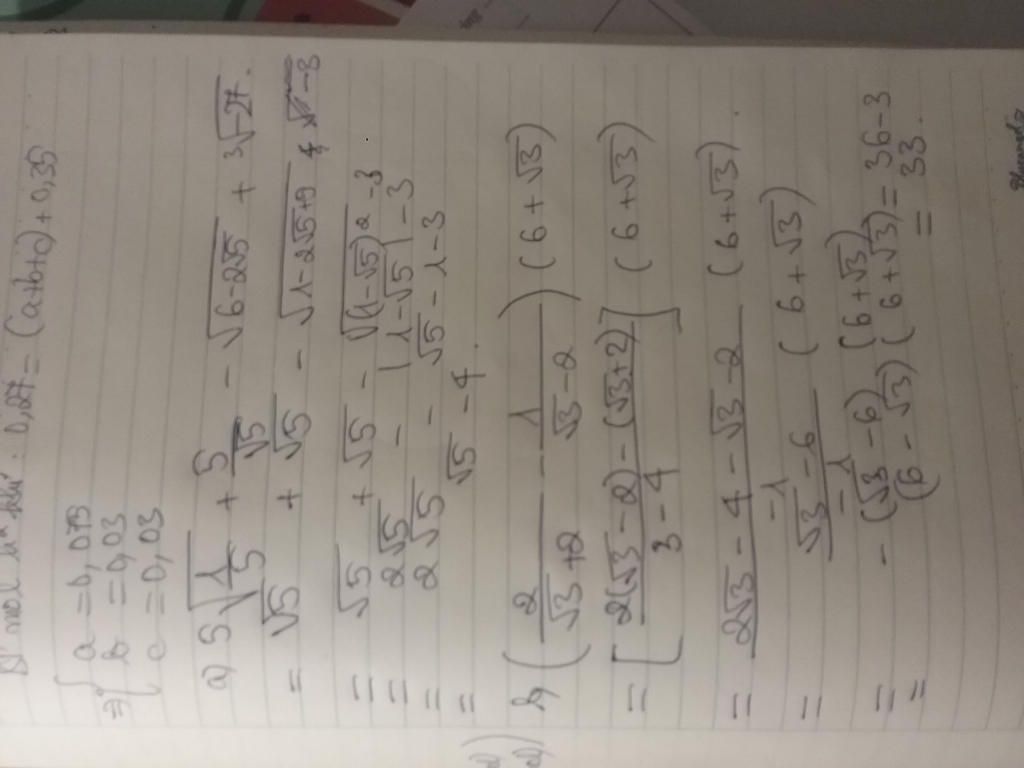 mol : 0,27 = (a+b+c) + 0,35
⇒ { a = 0,075
b = 0,03
c = 0,03
a) 5√(1/5) + 5/√5 - √(6-2√5) + ³√-27.
= √5 + √5 - √(1-2√5+5) -3
= √5 + √5 - √((1-√5)²) -3
= 2√5 - |1-√5| -3
= 2√5 - √5 -1-3
= √5 - 4.
b, (2/(√3+2) - 1/(√3-2)) (6+√3)
= [(2(√3-2) - (√3+2))/(3-4)] (6+√3)
= (2√3 - 4 - √3 - 2)/-1 (6+√3)
= (√3 - 6)/-1 (6+√3)
= - (√3 - 6) (6+√3)
= (6 - √3) (6+√3) = 36-3
= 33.